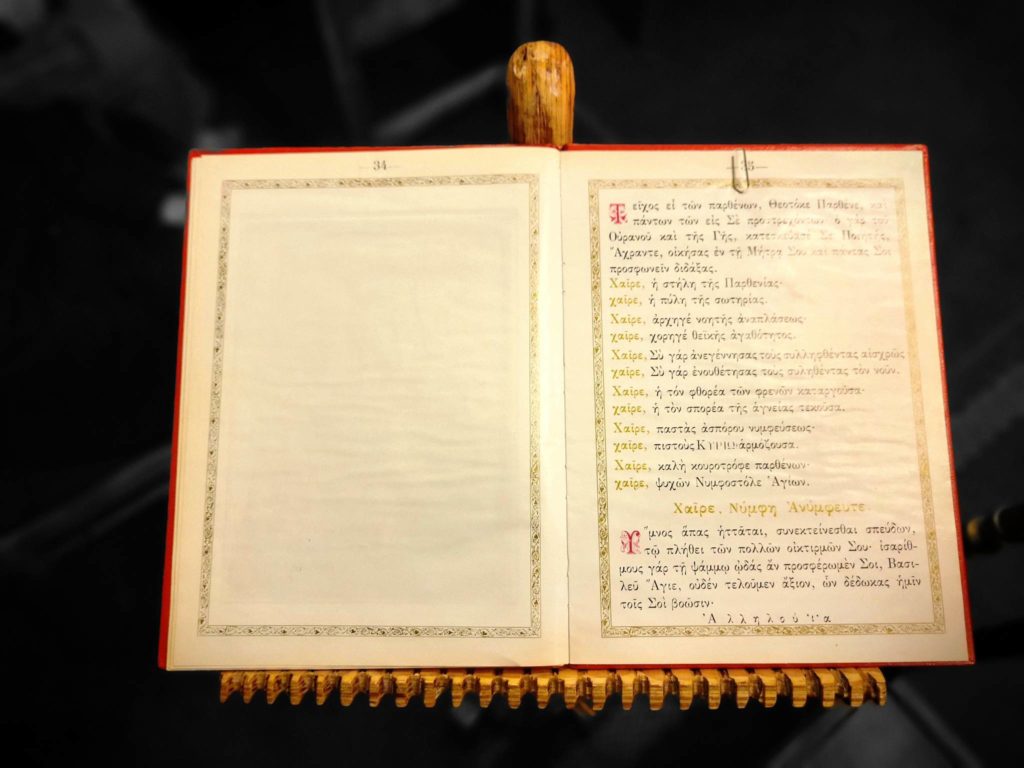 34
35
Τεῖχος εἶ τῶν παρθένων, Θεοτόκε Πάρθενε, καὶ
πάντων τῶν εἰς Σὲ προστρεχόντων· ὁ γάρ τοῦ
Οὐρανοῦ καὶ τῆς Γῆς, κατεσκεύασέ Σε Ποιητής,
Ἄχραντε, οἰκήσας ἐν τῇ Μήτρᾳ Σου καὶ πάντας Σοι
προσφωνεῖν διδάξας.
Χαῖρε, ἡ στήλη τῆς Παρθενίας·
χαῖρε, ἡ πύλη τῆς σωτηρίας.
Χαῖρε, ἀρχηγέ νοητῆς ἀναπλάσεως·
χαῖρε, χορηγέ θεϊκῆς ἀγαθότητος.
Χαῖρε, Σὺ γάρ ἀνεγέννησας τοὺς συλληφθέντας αἰσχρῶς
χαῖρε, Σὺ γάρ ἐνουθέτησας τοὺς συληθέντας τὸν νοῦν.
Χαῖρε, ἡ τόν φθορέα τῶν φρενῶν καταργοῦσα·
χαῖρε, ἡ τὸν σπορέα τῆς ἁγνείας τεκοῦσα.
Χαῖρε, παστὰς ἀσπόρου νυμφεύσεως·
χαῖρε, πιστοὺς ΚΥΡΙῼ ἁρμόζουσα.
Χαῖρε, καλὴ κουροτρόφε παρθένων·
χαῖρε, ψυχῶν Νυμφοστόλε Ἁγίων.
Χαῖρε, Νύμφη Ἀνύμφευτε.
Ὕμνος ἅπας ἡττᾶται, συνεκτείνεσθαι σπεύδων,
τῷ πλήθει τῶν πολλῶν οἰκτιρμῶν Σου· ἰσαρίθ-
μους γάρ τῇ ψάμμῳ ᾠδάς ἄν προσφέρωμέν Σοι, Βασι-
λεῦ Ἅγιε, οὐδέν τελοῦμεν ἄξιον, ὧν δέδωκας ἡμῖν
τοῖς Σοὶ βοῶσιν·
Ἀλληλούϊα